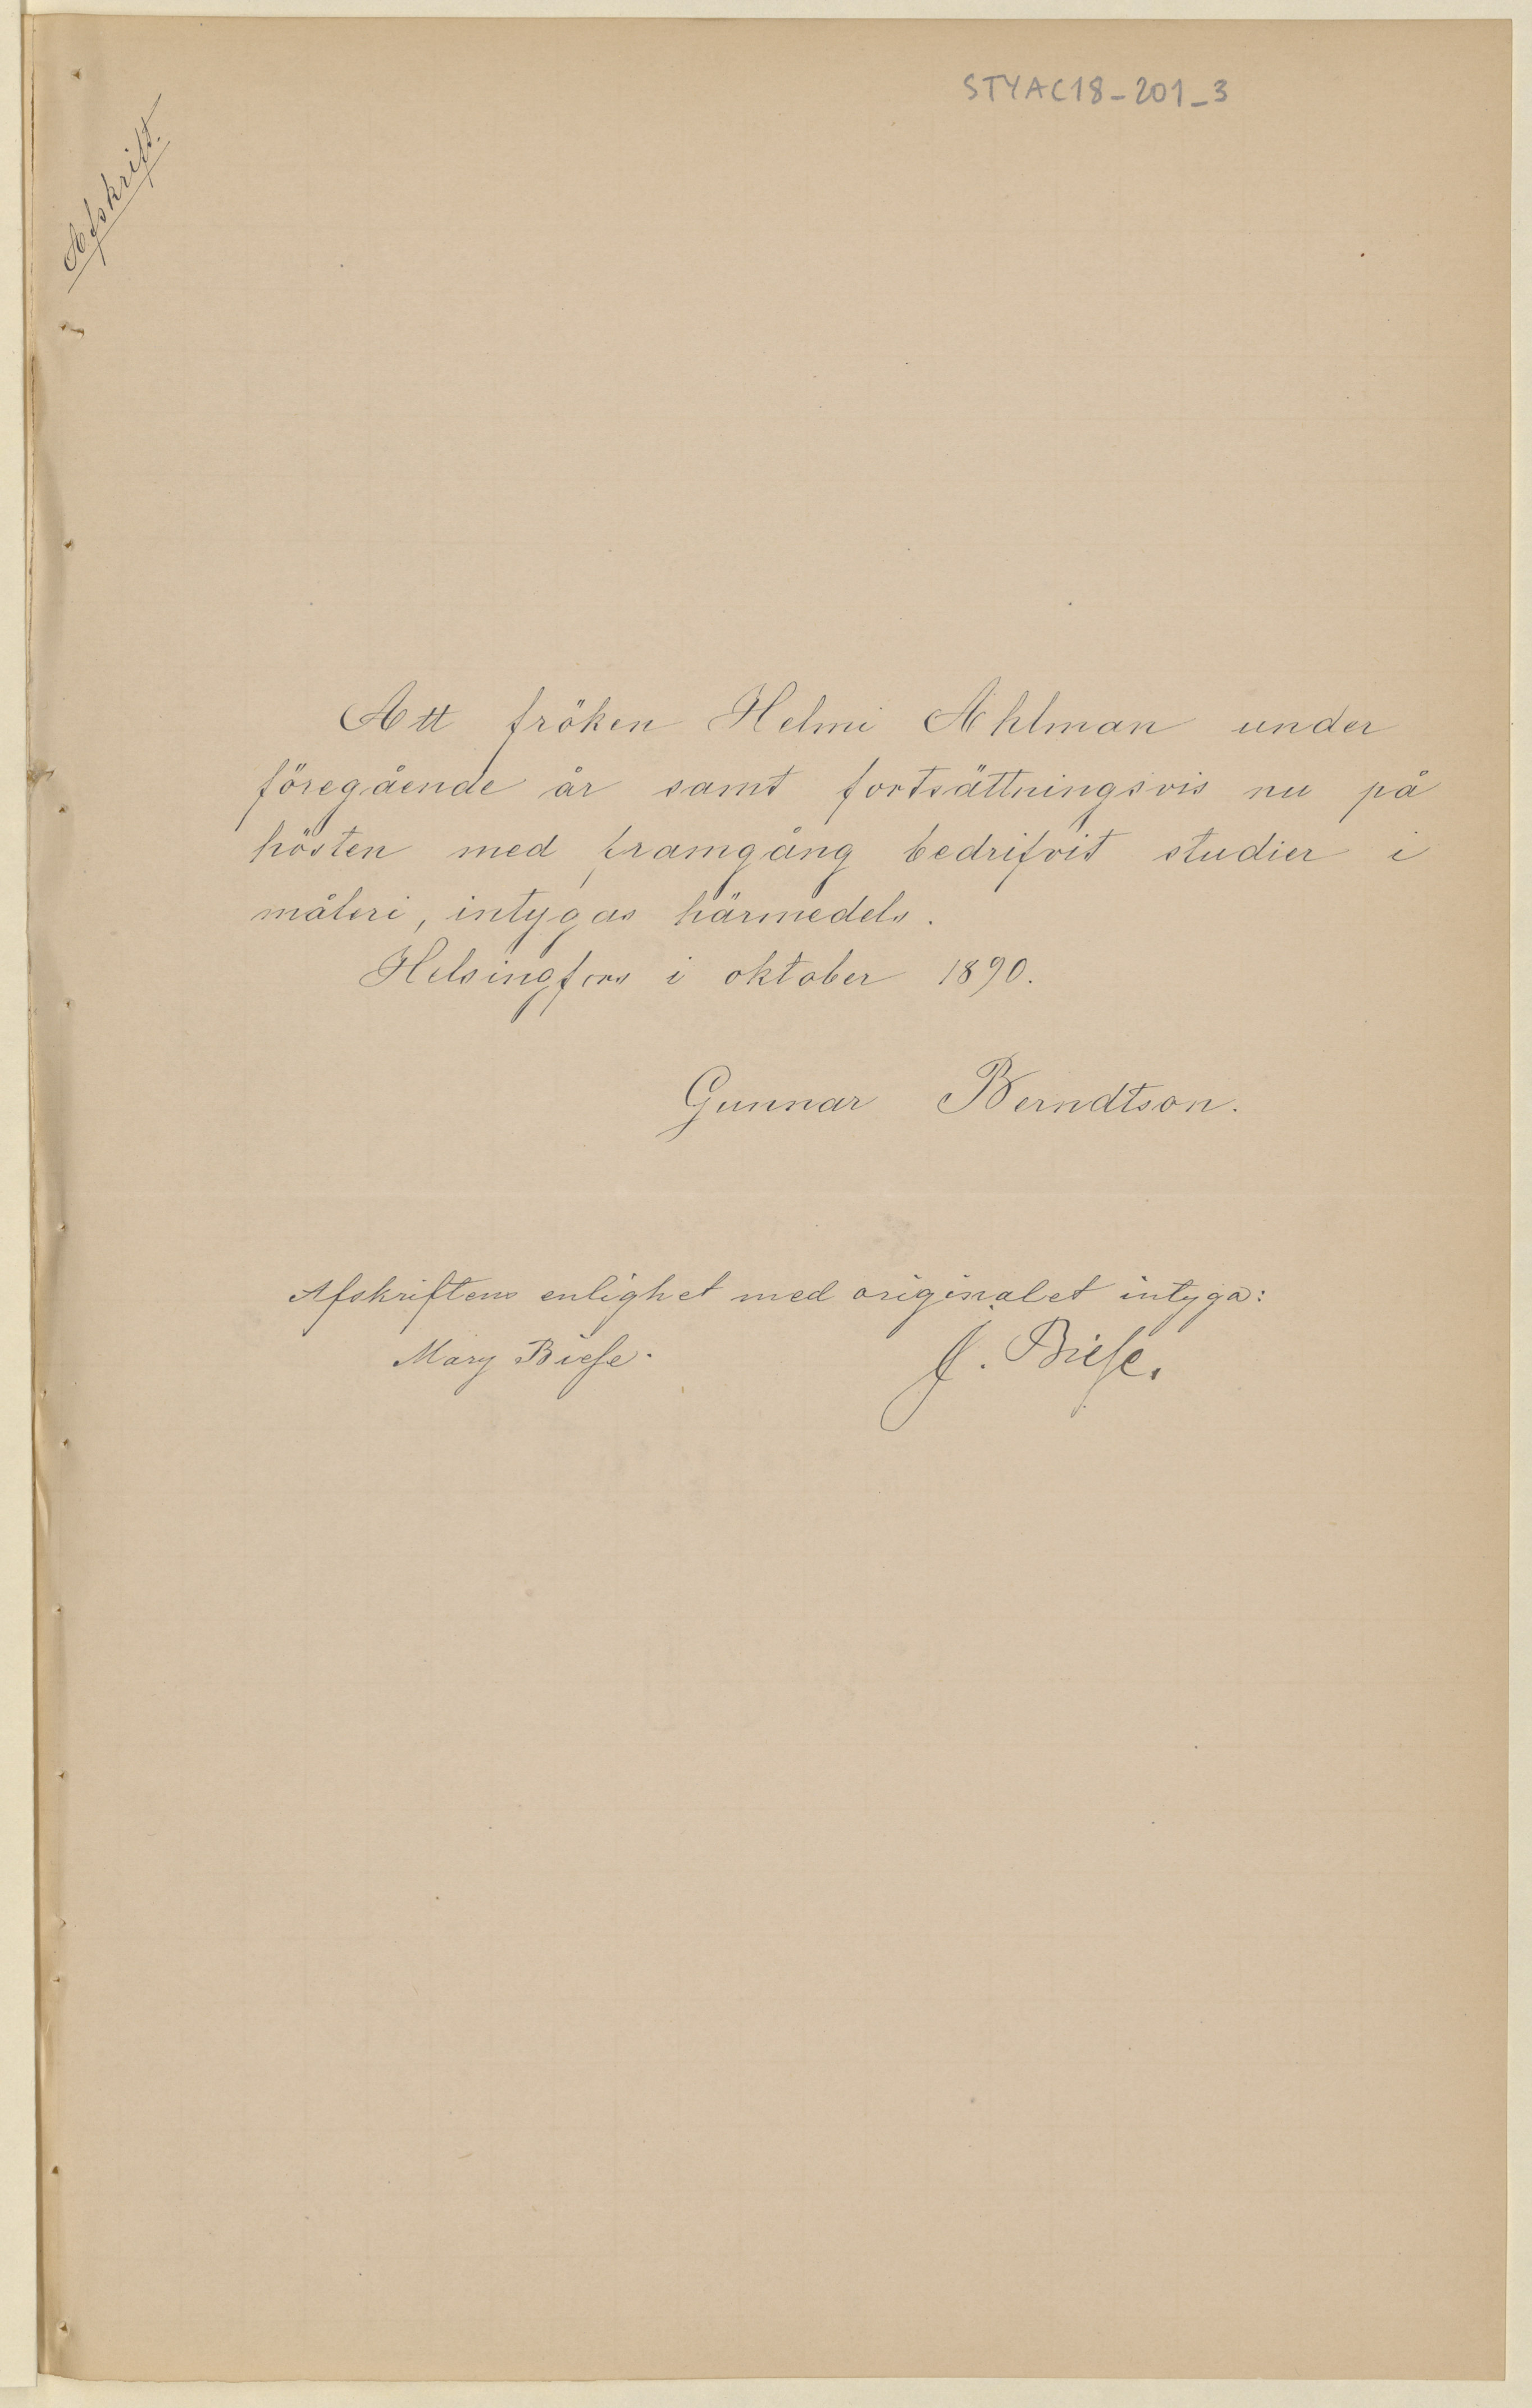 STYAC18-201-3
Afskrift.
Att fröken Helmi Ahlman under
föregående år samt fortsättningsvis nu på
hösten med framgång bedrifvit studier i
måleri, intygas härmedels.
Helsingfors i oktober 1890.
Gunnar Berndtson.
Afskriftens enlighet med originalet intyga:
Mary Biese. J. Biese.